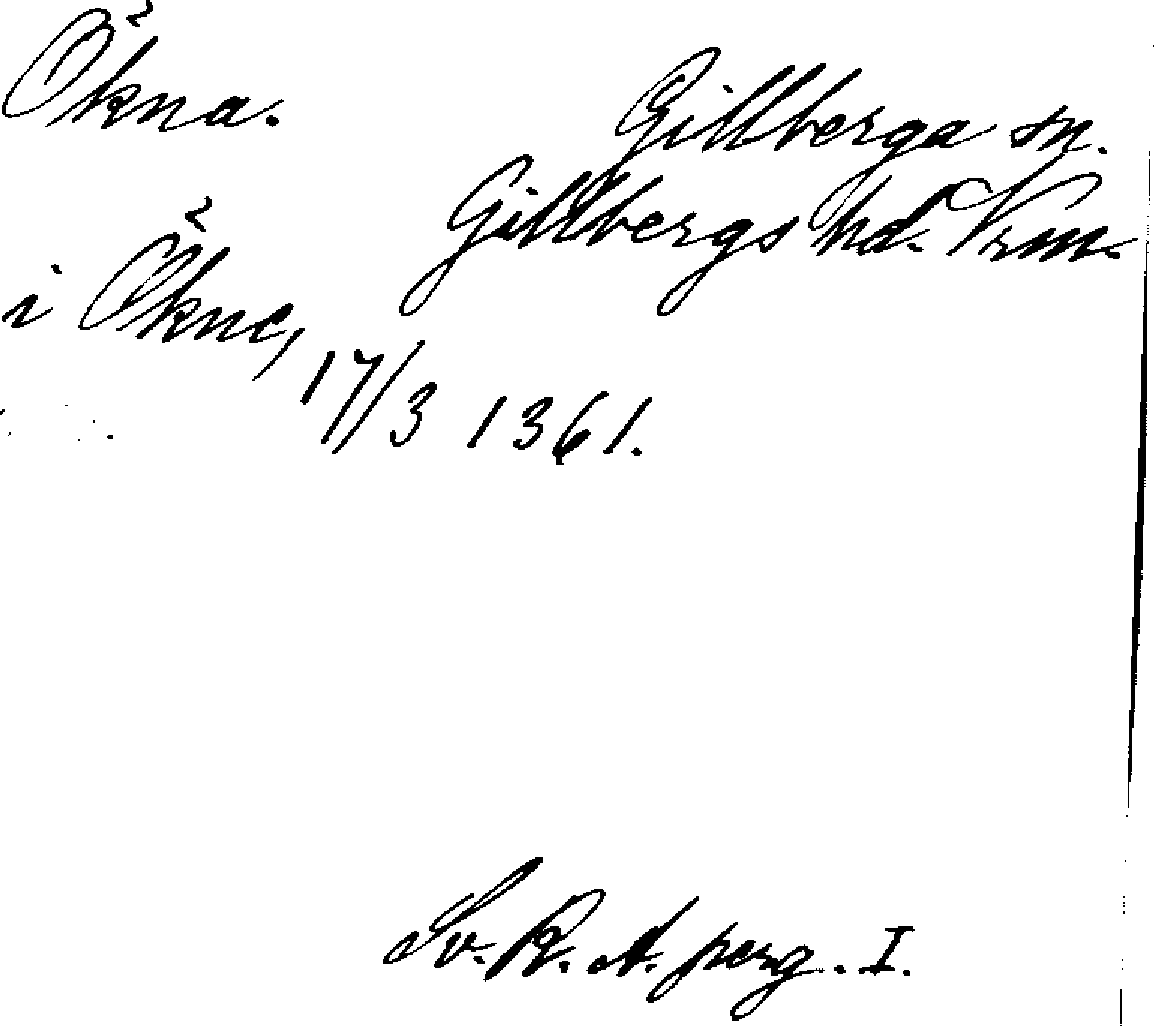 Ökna.
Gillberga sn.
Gillbergs hd. Vrm.
i Økne,
17/3 1361.
Sv. R. A. perg. I.